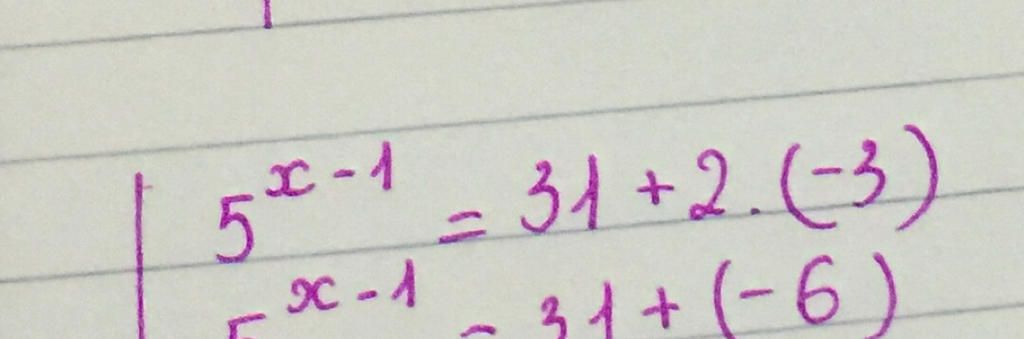 5^{x-1} = 31 + 2.(-3)
5^{x-1} = 31 + (-6)